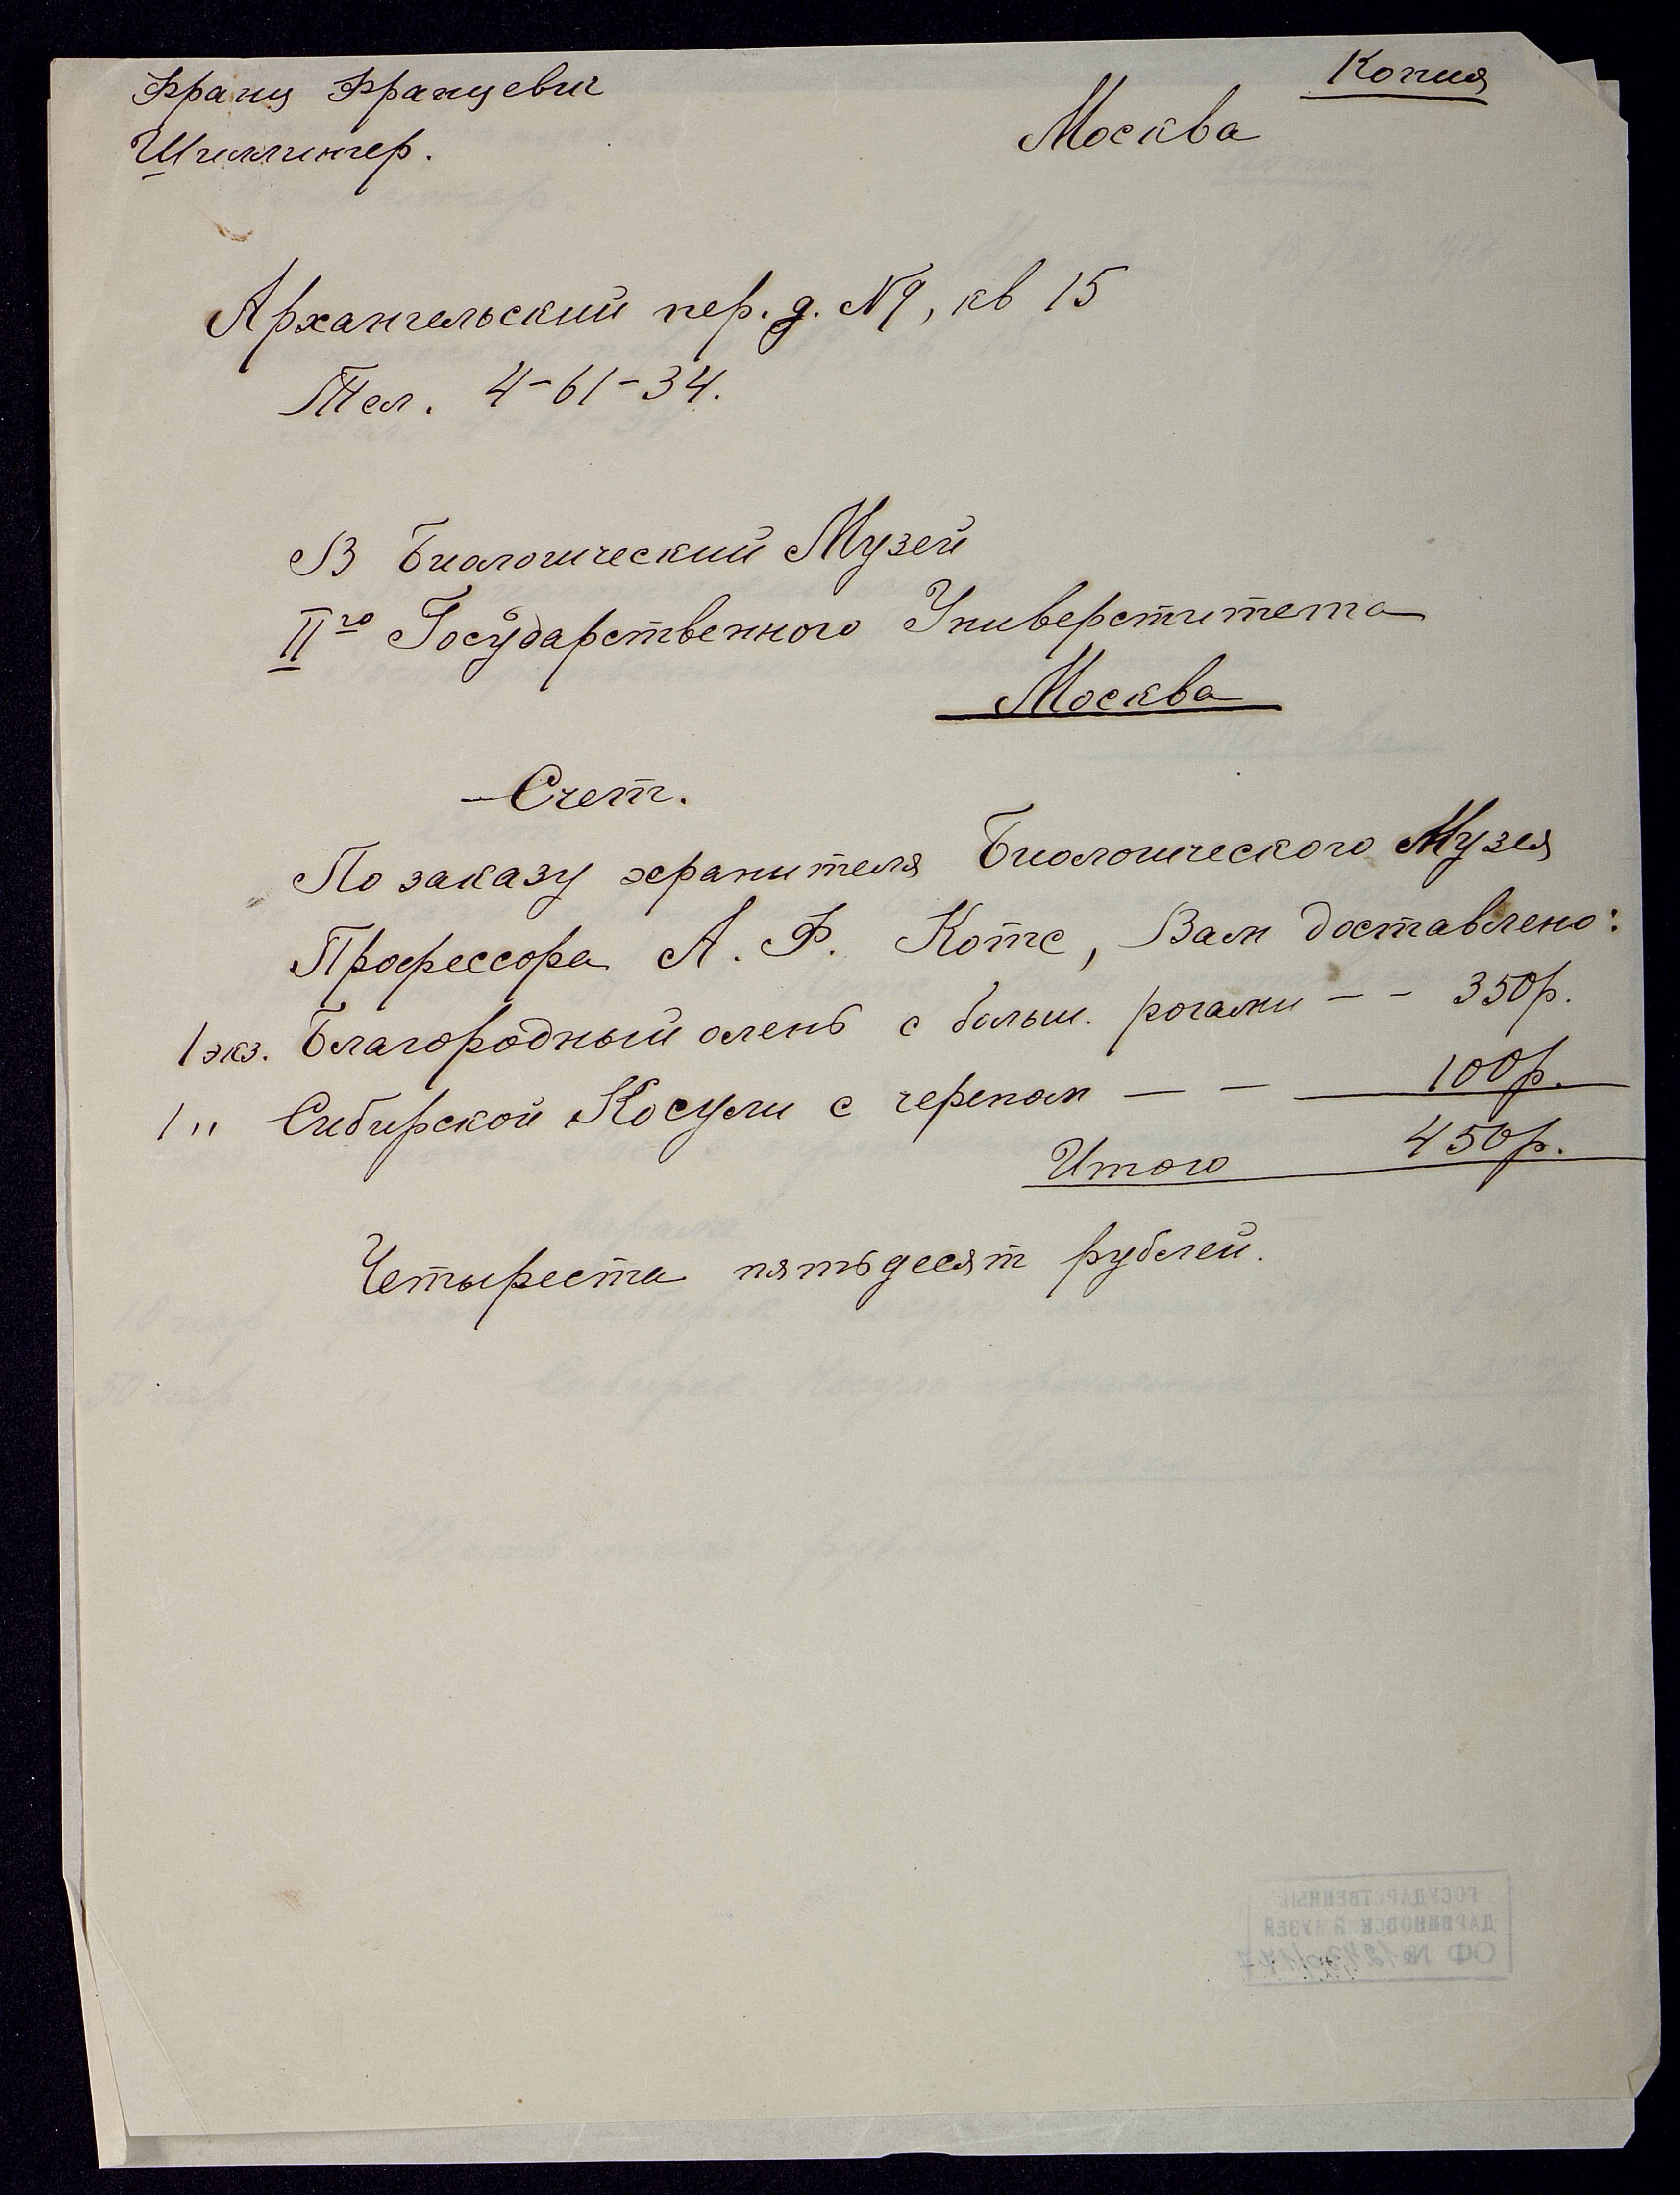 Копия
Франц Францевич
Москва
Шиллингер.
Архангельский пер. д. N9, кв 15
Тел. 4-61-34.
В Биологический Музей
IIго Государственного Университета
Москва
Счет.
По заказу хранителя Биологического Музея
Профессора А. Ф. Котс, Вам доставлено:
1 экз. Благородный олень с больш. рогами - - 350р.
1 " Сибирской Косули с черепом — — 100р.
Итого 450р.
Четыреста пятьдесят рублей.
ГОСУДАРСТВЕННЫЙ
ДАРВИНОВСКИЙ МУЗЕЙ
ОФ №